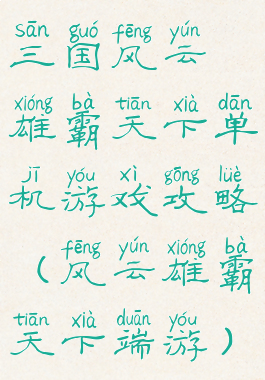 sān guó fēng yún
三国风云
xióng bà tiān xià dān
雄霸天下单
jī yóu xì gōng lüè
机游戏攻略
fēng yún xióng bà
（风云雄霸
tiān xià duān yóu
天下端游）